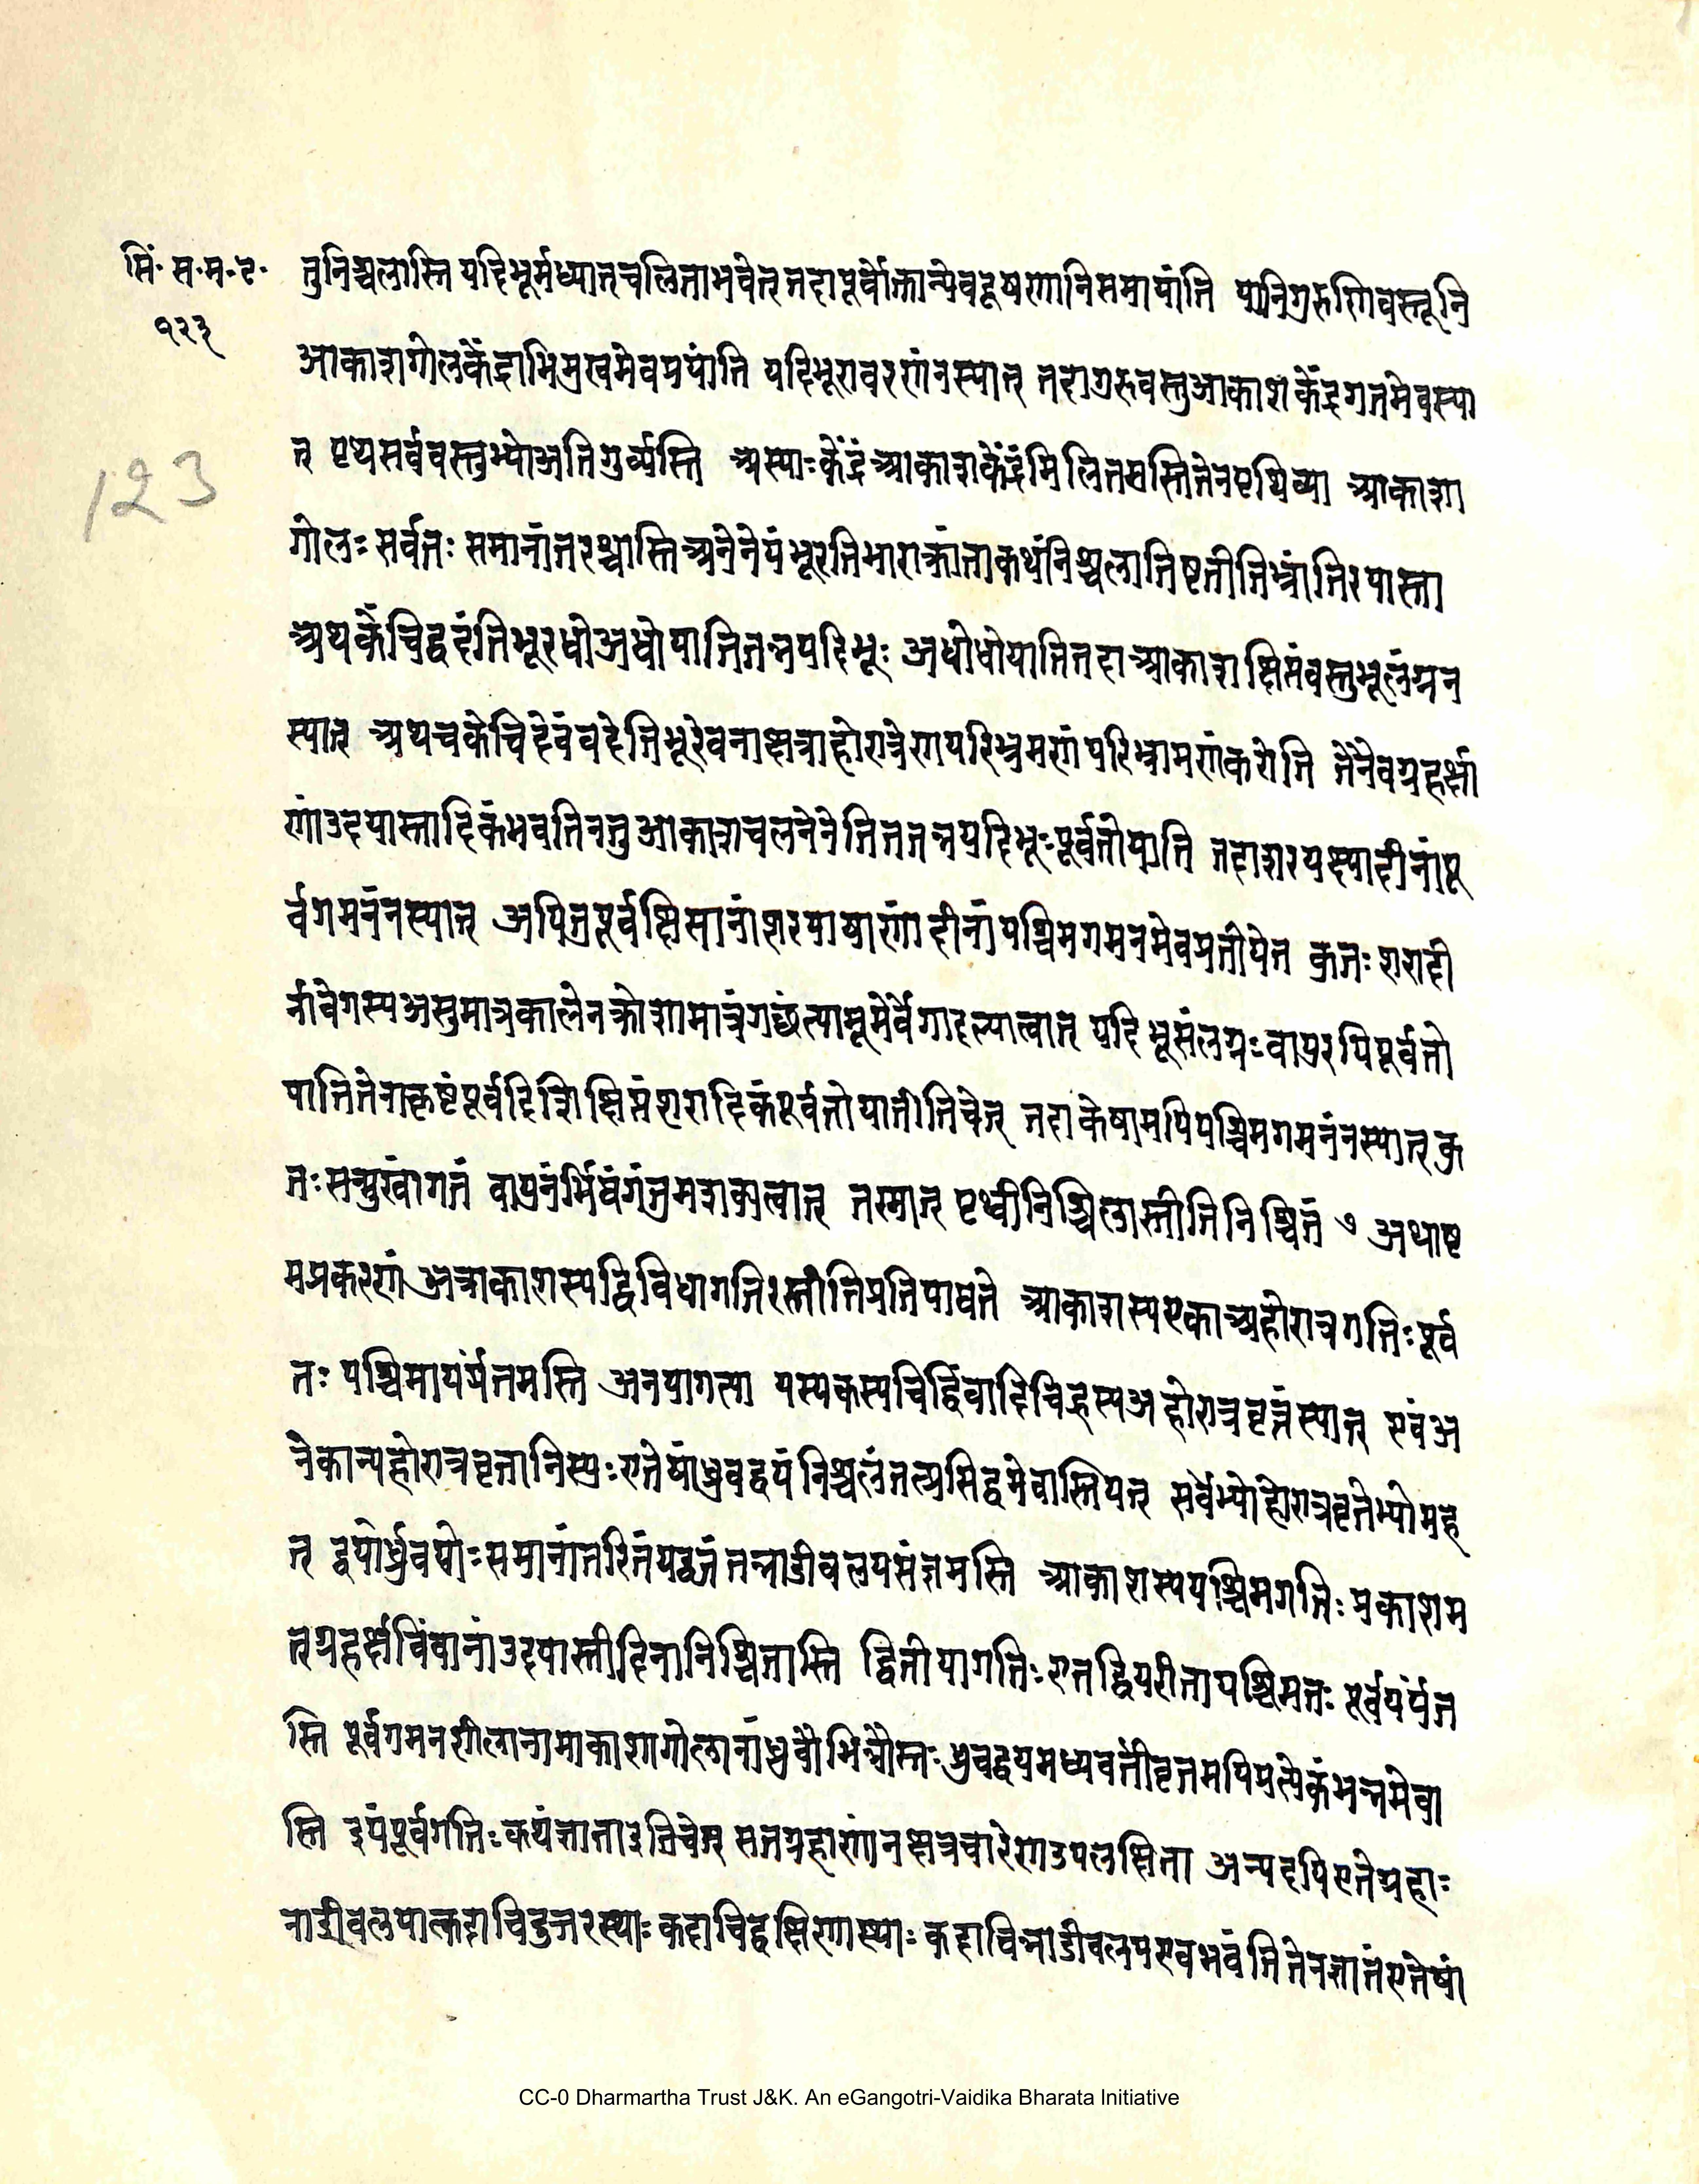 सिं॰ स॰ म॰ ट॰
१२३
123
तुनिश्चलास्ति यदिभूर्मध्यातचलिताभवेत् तदापूर्वोक्तान्येवदूषणानिसमायांति यानिगुरुणिवस्तूनि
आकाशगोलकेंद्राभिमुखमेवप्रयांति यदिभूरावरणंनस्यात् तदागुरुवस्तुआकाशकेंद्रगतमेवस्या
त् पृथसर्ववस्तुभ्योअतिगुर्व्यस्ति अस्याःकेंद्रंआकाशकेंद्रंमिलितमस्तितेनपृथिव्या आकाश
गोलः सर्वतः समानांतरश्चास्तिअनेनेयंभूरतिभाराक्रांताकथंनिश्चलातिष्टतीतिभ्रांतिरपास्ता
अथकेचिद्वदंतिभूरधोअधोयातितन्नयदिभूः अधोधोयातितदाआकाशक्षिप्तंवस्तुभूलग्नन
स्यात् अथचकेचिदेवंवदेतिभूरेवनाक्षत्राहोरात्रेणपरिभ्रमणंपरिभ्रामणंकरोति तेनैवग्रहर्क्षा
णांउदयास्तादिकंभवतिनतुआकाशचलनेनेतिततन्नयदिभूःपूर्वतोयाति तदाशरयस्यादीनांपू
र्वगमनंनस्यात् अपितुपूर्वक्षिप्तानांशरपाषाणादीनांपश्चिमगमनमेवप्रतीयेत कुतः शरादी
नांवेगस्यअसुमात्रकालेनक्रोशमात्रंगछंत्याभूमेर्वेगादल्पात्वात् यदि भूसंलग्नःवायुरपिपूर्वतो
यातितेनाकृष्टंपूर्वदिशिक्षिप्तंशरादिकंपूर्वतोयातीतिचेत् तदाकेषामपिपश्चिमगमनंनस्यात्कु
तःसन्मुखांगतं वायुनंर्भिघंगंतुमशक्यत्वात् तस्मात् पृथ्वीनिश्चिलास्तीतिनिश्चितं ७ अथाष्ट
मप्रकरणं अत्राकाशस्यद्विविधागतिरस्तीतिप्रतिपाद्यते आकाशस्यएकाअहोरात्रगतिःपूर्व
तः पश्चिमायंर्यंतमस्ति अनयागत्या यस्यकस्यचिद्विंवादिचिह्नस्यअहोरात्रवृत्तंस्यात् एवंअ
नेकान्यहोरात्रवृत्तानिस्युःएतेषांध्रुवद्वयंनिश्चलंतत्प्रसिद्धमेवास्तियत् सर्वेभ्योहोरात्रवृतेभ्योमह
त् द्वयोर्ध्रुवयोःसमानांतरितंयद्वृत्तं तन्नाडीवलयसंज्ञमस्ति आकाशस्यपश्चिमगतिः प्रकाशम
त्ग्रहर्क्षविंवानांउदयास्तादिनानिश्चितास्ति द्वितीयागतिःएतद्विपरीतापश्चिमतः पूर्वयंर्यंत
स्ति पूर्वगमनशीलानामाकाशगोलानांध्रुवोभिन्नौस्तःध्रुवद्वयमध्यवर्तीवृत्तमपिप्रत्येकंभन्नमेवा
स्ति इयंपूर्वगतिःकथंज्ञाताइतिचेत् सतग्रहाणांनक्षत्रचारेणउपलक्षिता अन्यदपिएतेग्रहाः
नाडीवलयात्कदाचिदुत्तरस्थाः कदाचिद्दक्षिणास्थाः कदाचिन्नाडीवलयएवभवंतितेनज्ञातंएतेषां
CC-0 Dharmartha Trust J&K. An eGangotri-Vaidika Bharata Initiative